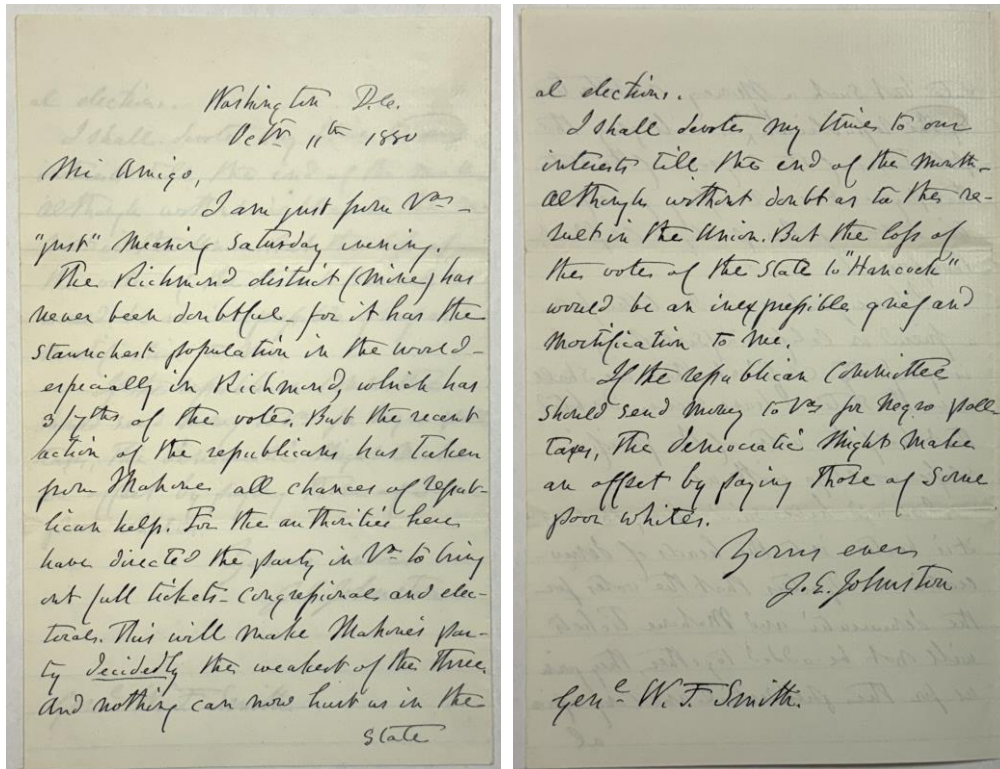 Washington D.C.
Octr. 11th 1880
Mi Amigo,
I am just from Va -
"just" meaning Saturday evening.
The Richmond district (mine) has
never been doubtful - for it has the
staunchest population in the world -
especially in Richmond, which has
3/7ths of the votes. But the recent
action of the republicans has taken
from Mahone all chances of repub-
lican help. For the authorities here
have directed the party in Va to bring
out full tickets - Congressional and elec-
toral. This will make Mahone's par-
ty decidedly the weakest of the three
And nothing can now hurt us in the
State
al elections.
I shall devote my time to our
interests till the end of the month -
although without doubt as to the re-
sult in the Union. But the loss of
the votes of the State to "Hancock"
would be an inexpressible grief and
mortification to me.
If the republican Committee
should send money to Va for Negro poll
taxes, the democratic might make
an offset by paying those of some
poor whites.
Yours ever
J. E. Johnston
Genl. W. F. Smith.